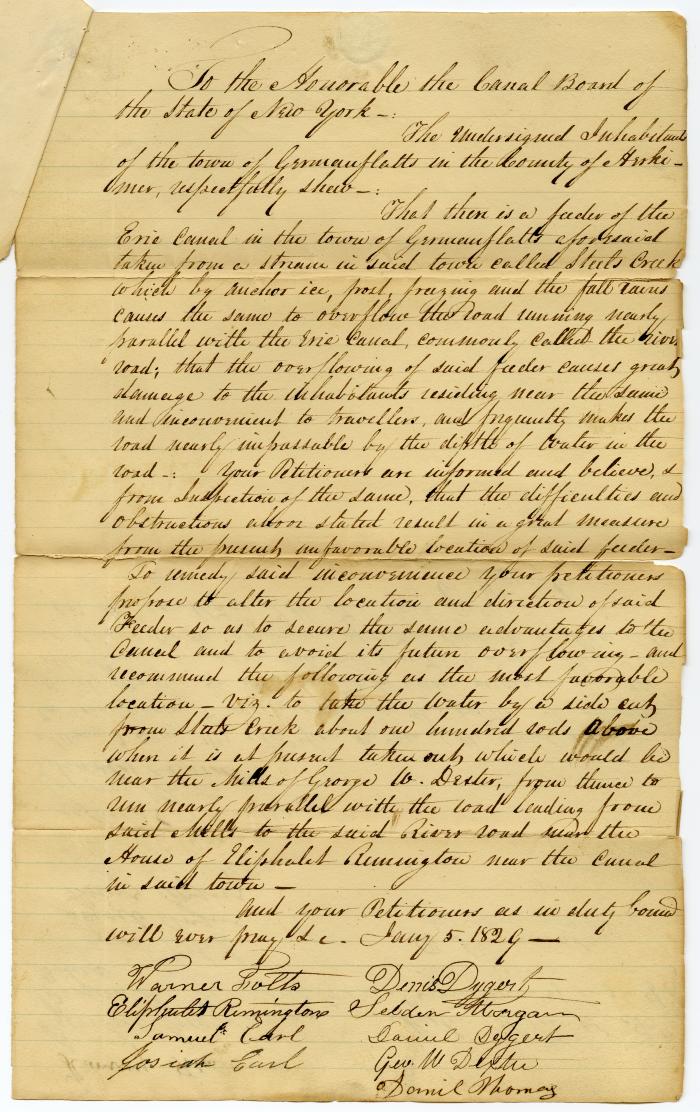 To the Honorable the Canal Board of
the State of New York -:
The Undersigned Inhabitants
of the town of Germanflatts in the County of Herki-
mer, respectfully shew -:
That there is a feeder of the
Erie Canal in the town of Germanflatts aforesaid
taken from a stream in said town called Steels Creek
which by anchor ice, frost, freezing and the fall rains
causes the same to overflow the road running nearly
parallel with the Erie Canal, commonly called the river
road; that the overflowing of said feeder causes great
damage to the inhabitants residing near the same
and inconvenient to travellers, and frequently makes the
road nearly impassable by the depth of water in the
road -: Your Petitioners are informed and believe, &
from Inspection of the same, that the difficulties and
obstructions above stated result in a great measure
from the present unfavorable location of said feeder -
To remedy said inconvenience your petitioners
propose to alter the location and direction of said
Feeder so as to secure the same advantages to the
Canal and to avoid its future overflowing - and
recommend the following as the most favorable
location - viz. to take the water by a side cut
from Steels Creek about one hundred rods above
when it is at present taken out, which would be
near the Mills of George W. Dexter, from thence to
run nearly parallel with the road leading from
said Mills to the said River road near the
House of Eliphalet Remington near the Canal
in said town -
And your Petitioners as in duty bound
will ever pray &c - Jany 5. 1829 -
Warner Folts Denis Dygert
Eliphalet Remington Selden Morgan
Samuel Earl Daniel Dygert
Josiah Earl Geo. W Dexter
Daniel Thomas